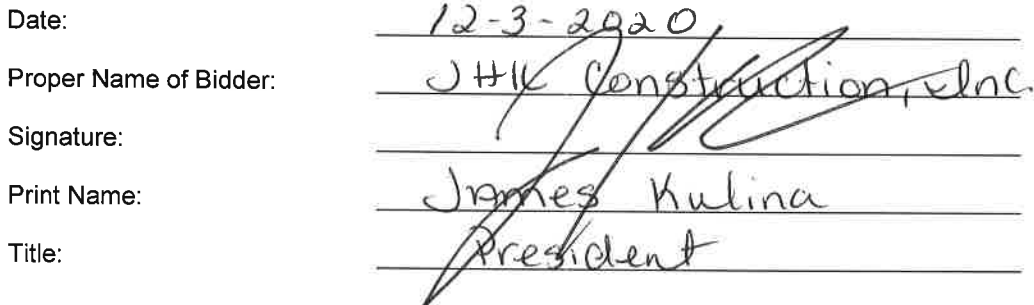 Date: 12-3-2020
Proper Name of Bidder: JHK Construction, Inc.
Signature:
Print Name: James Kulina
Title: President